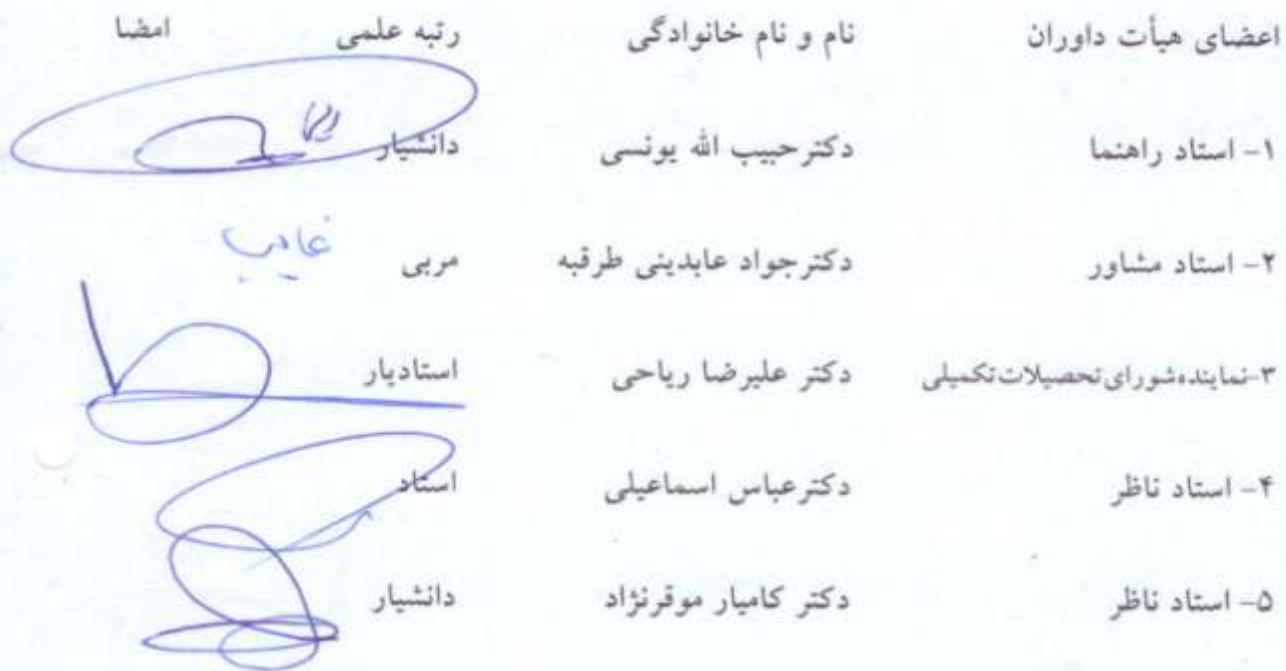 اعضای هیأت داوران نام و نام خانوادگی رتبه علمی امضا
۱- استاد راهنما دکترحبیب الله یونسی دانشیار
۲- استاد مشاور دکترجواد عابدینی طرقبه مربی غایب
۳-نماینده‌شورای‌تحصیلات‌تکمیلی دکتر علیرضا ریاحی استادیار
۴- استاد ناظر دکترعباس اسماعیلی استاد
۵- استاد ناظر دکتر کامیار موقرنژاد دانشیار